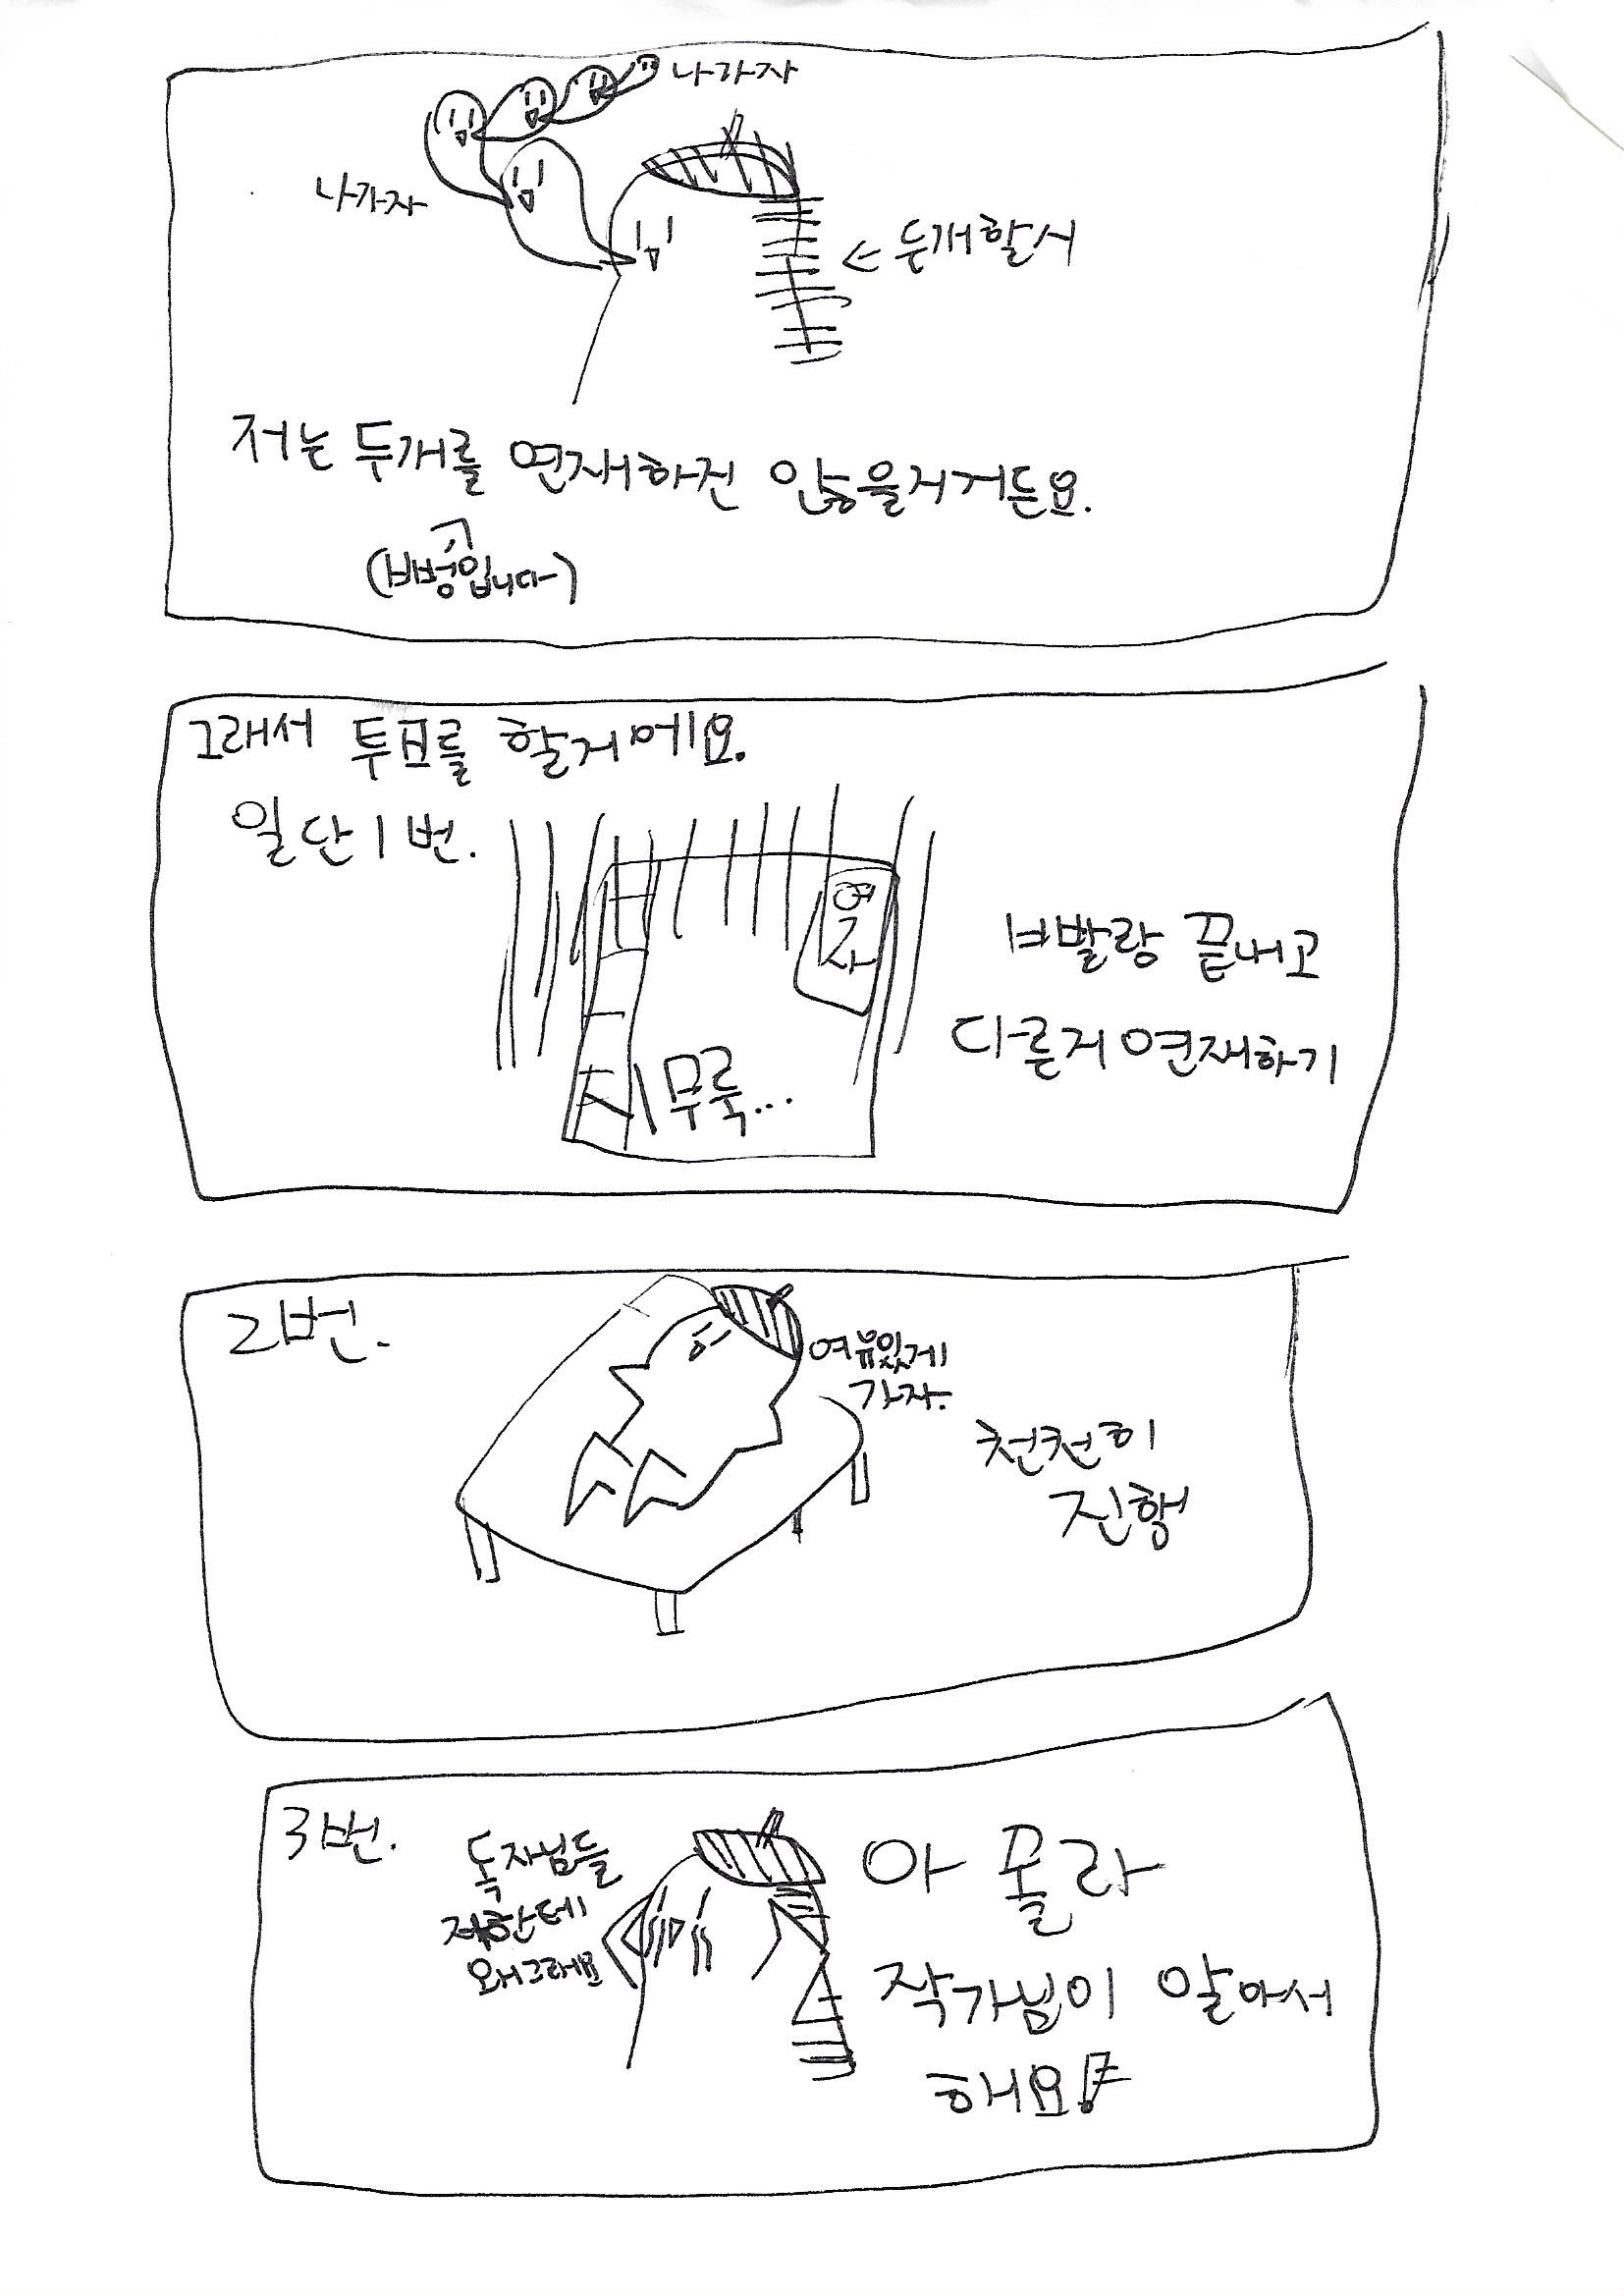 나가자
나가자
← 두개할시
저는 두개를 연재하진 않을거거든요.
그래서 투표를 할게에요.
일단 1번.
여
무룩...
빠빨랑 끝내고
다른거 연재하기
2번.
여유있게
가자.
천천히
진행
3번.
독자님들
저한테
왜그래요
아 몰라
작가님이 알아서
해요!